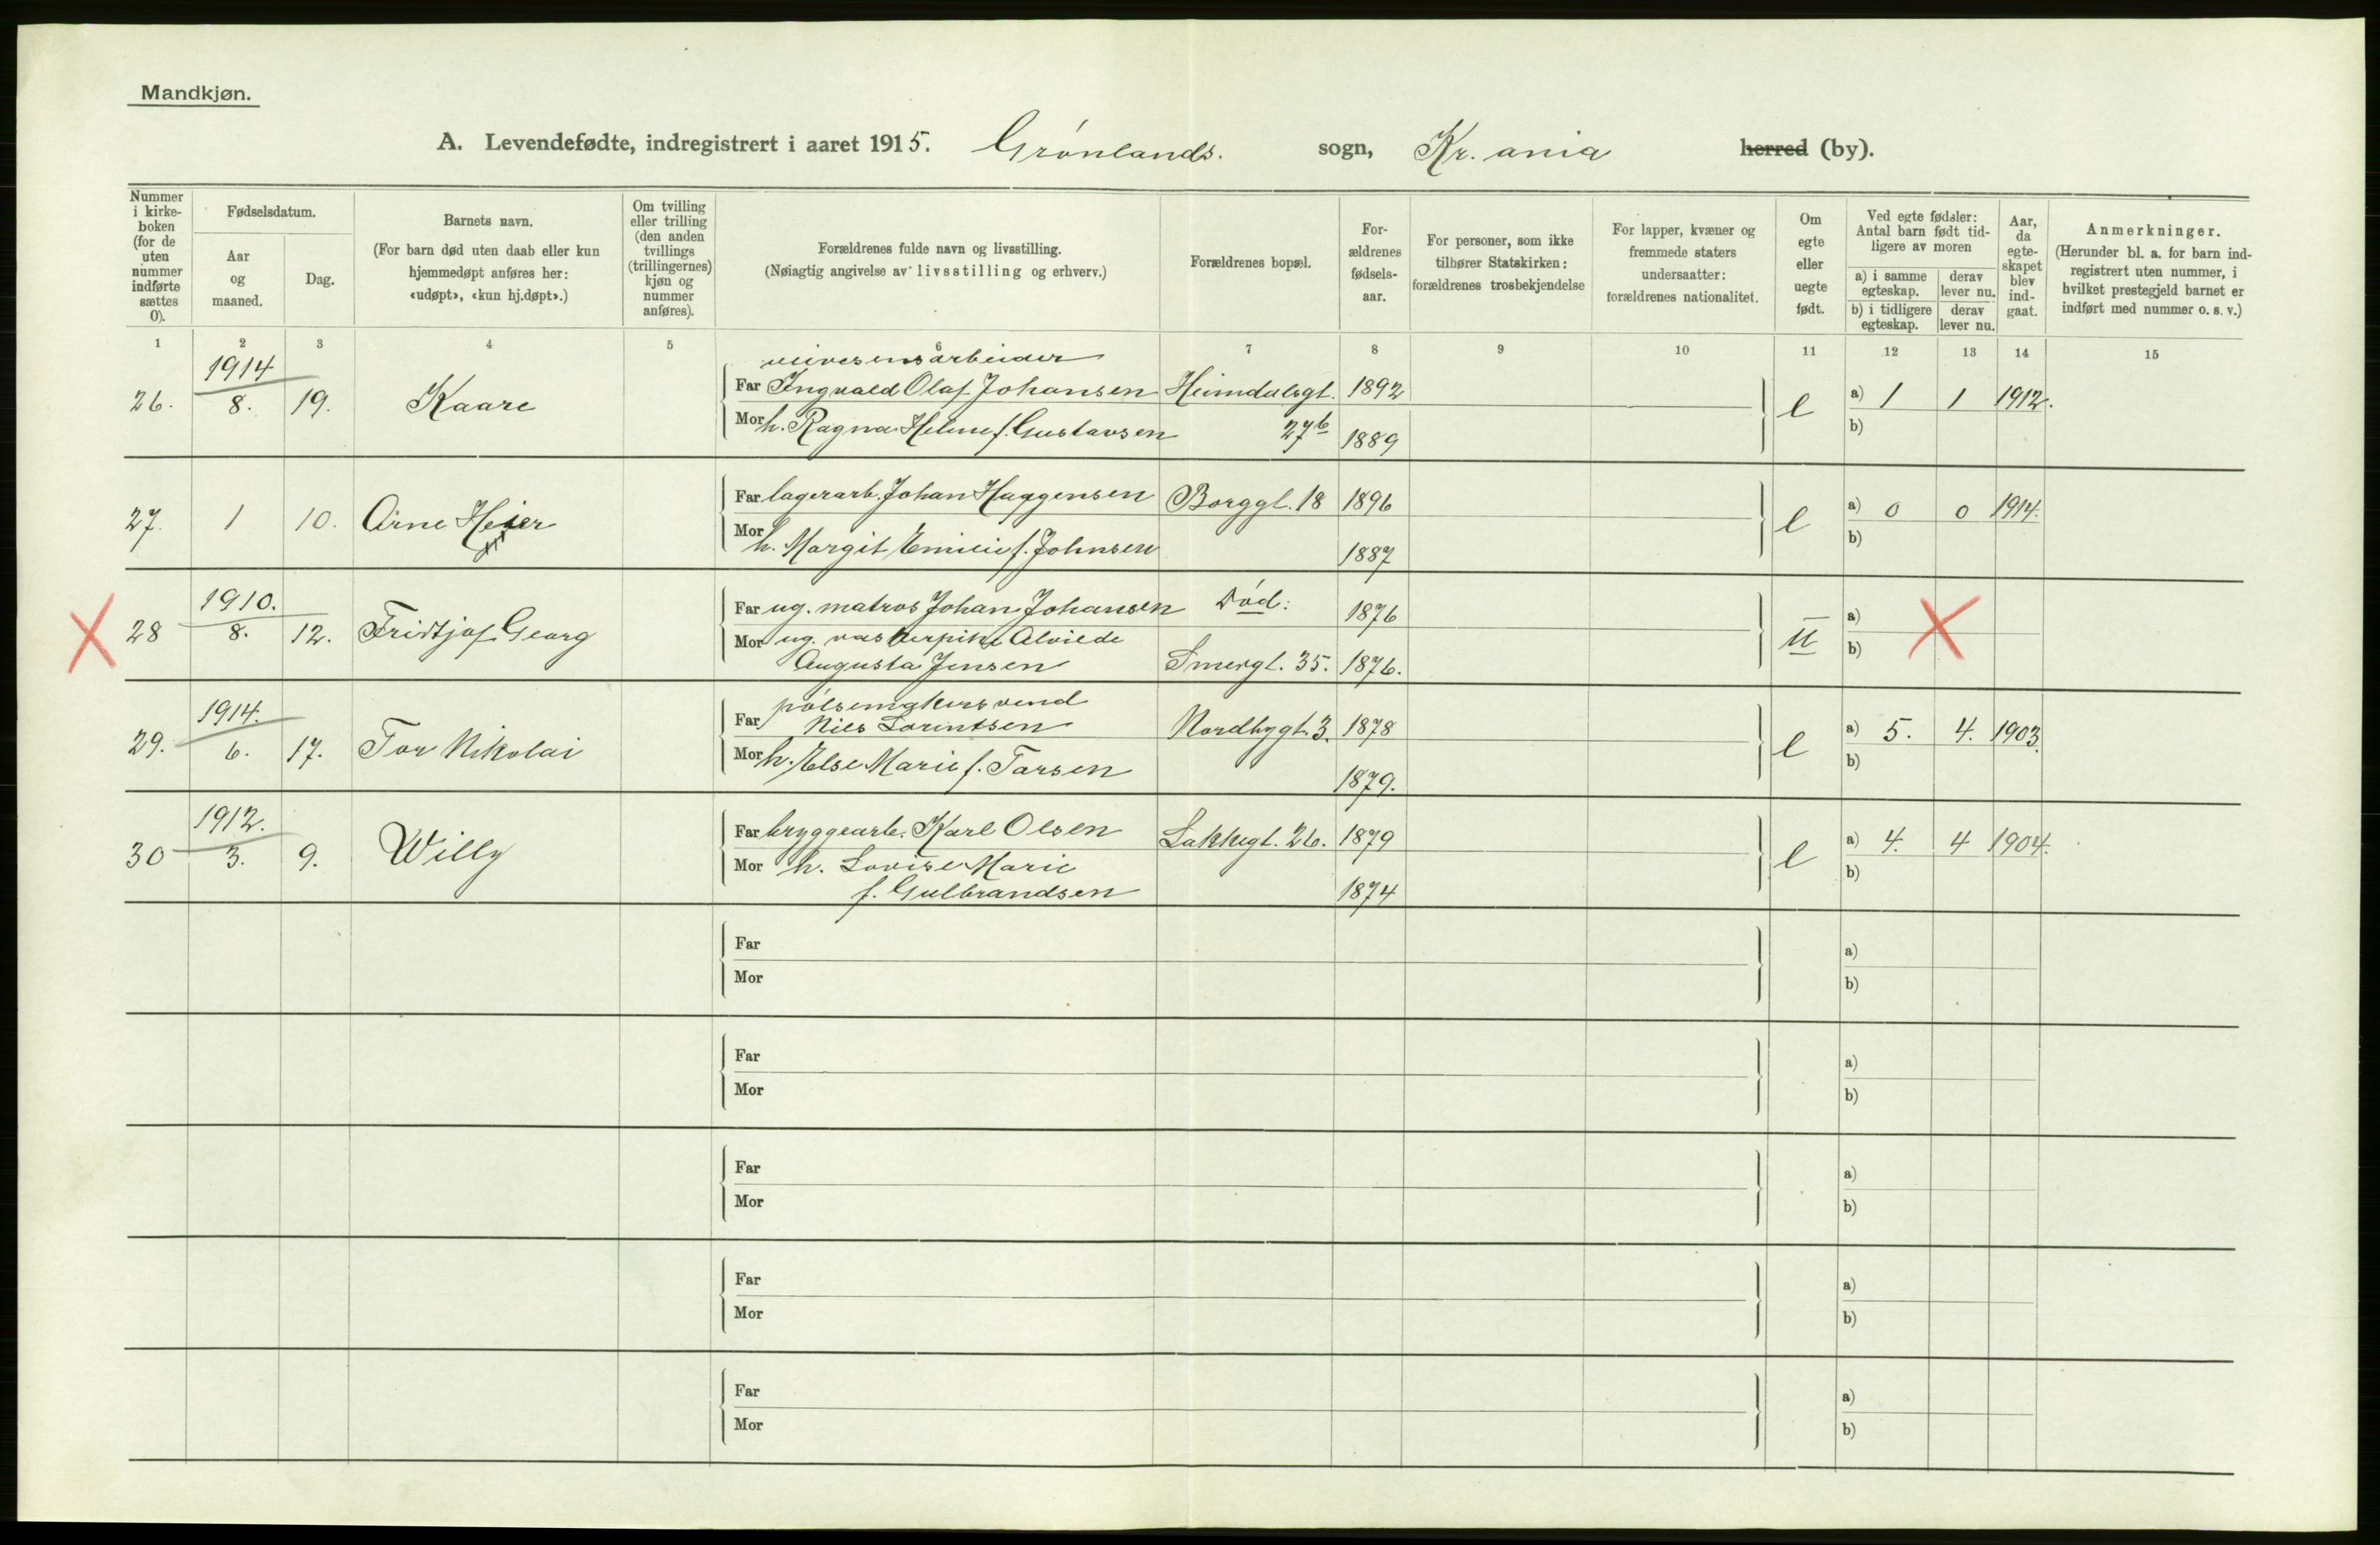 Mandkjøn.
A. Levendefødte, indregistrert i aaret 1915. Grønlands. sogn, Kr. ania herred (by).
Nummer i kirke-boken (for de uten nummer indførte sættes 0).
Fødselsdatum.
Aar og maaned.
Dag.
Barnets navn.
(For barn død uten daab eller kun hjemmedøpt anføres her: «udøpt», «kun hj.døpt».)
Om tvilling eller trilling (den anden tvillings (trillingernes) kjøn og nummer anføres).
Forældrenes fulde navn og livsstilling.
(Nøiagtig angivelse av livsstilling og erhverv.)
Forældrenes bopæl.
For-ældrenes fødsels-aar.
For personer, som ikke tilhører Statskirken: forældrenes trosbekjendelse
For lapper, kvæner og fremmede staters undersaatter: forældrenes nationalitet.
Om egte eller uegte født.
Ved egte fødsler: Antal barn født tid-ligere av moren
a) i samme egteskap. derav lever nu.
b) i tidligere egteskap. derav lever nu.
Aar, da egte-skapet blev ind-gaat.
Anmerkninger.
(Herunder bl. a. for barn ind-registrert uten nummer, i hvilket prestegjeld barnet er indført med nummer o. s. v.)
1 2 3 4 5 6 7 8 9 10 11 12 13 14 15
26. 1914 8. 19. Kaare
veivesensarbeider
Far Ingvald Olaf Johansen Heimdalsgt. 1892
Mor h. Ragna Helene f. Gustavsen 27b 1889
e a) 1 1 1912.
b)
27. 1 10. Arne Heier
Far lagerarb. Johan Haggensen Borggt. 18 1896
Mor h. Margit Emilie f. Johnsen 1887
e a) 0 0 1914.
b)
28 1910. 8. 12. Fridtjof Georg
Far ug. matros Johan Johansen Død: 1876
Mor ug. vaskerpike Alvilde
Augusta Jensen Smergt. 35. 1876.
u a)
b)
29. 1914. 6. 17. Tor Nikolai
pølsemakersvend
Far Nils Lorentsen Nordbygt. 3. 1878
Mor h. Else Marie f. Tarsen 1879.
e a) 5. 4. 1903.
b)
30 1912. 3. 9. Willy
Far bryggearb. Karl Olsen Lakkegt. 26. 1879
Mor h. Lovise Marie
f. Gulbrandsen 1874
e a) 4. 4 1904.
b)
Far a)
Mor b)
Far a)
Mor b)
Far a)
Mor b)
Far a)
Mor b)
Far a)
Mor b)